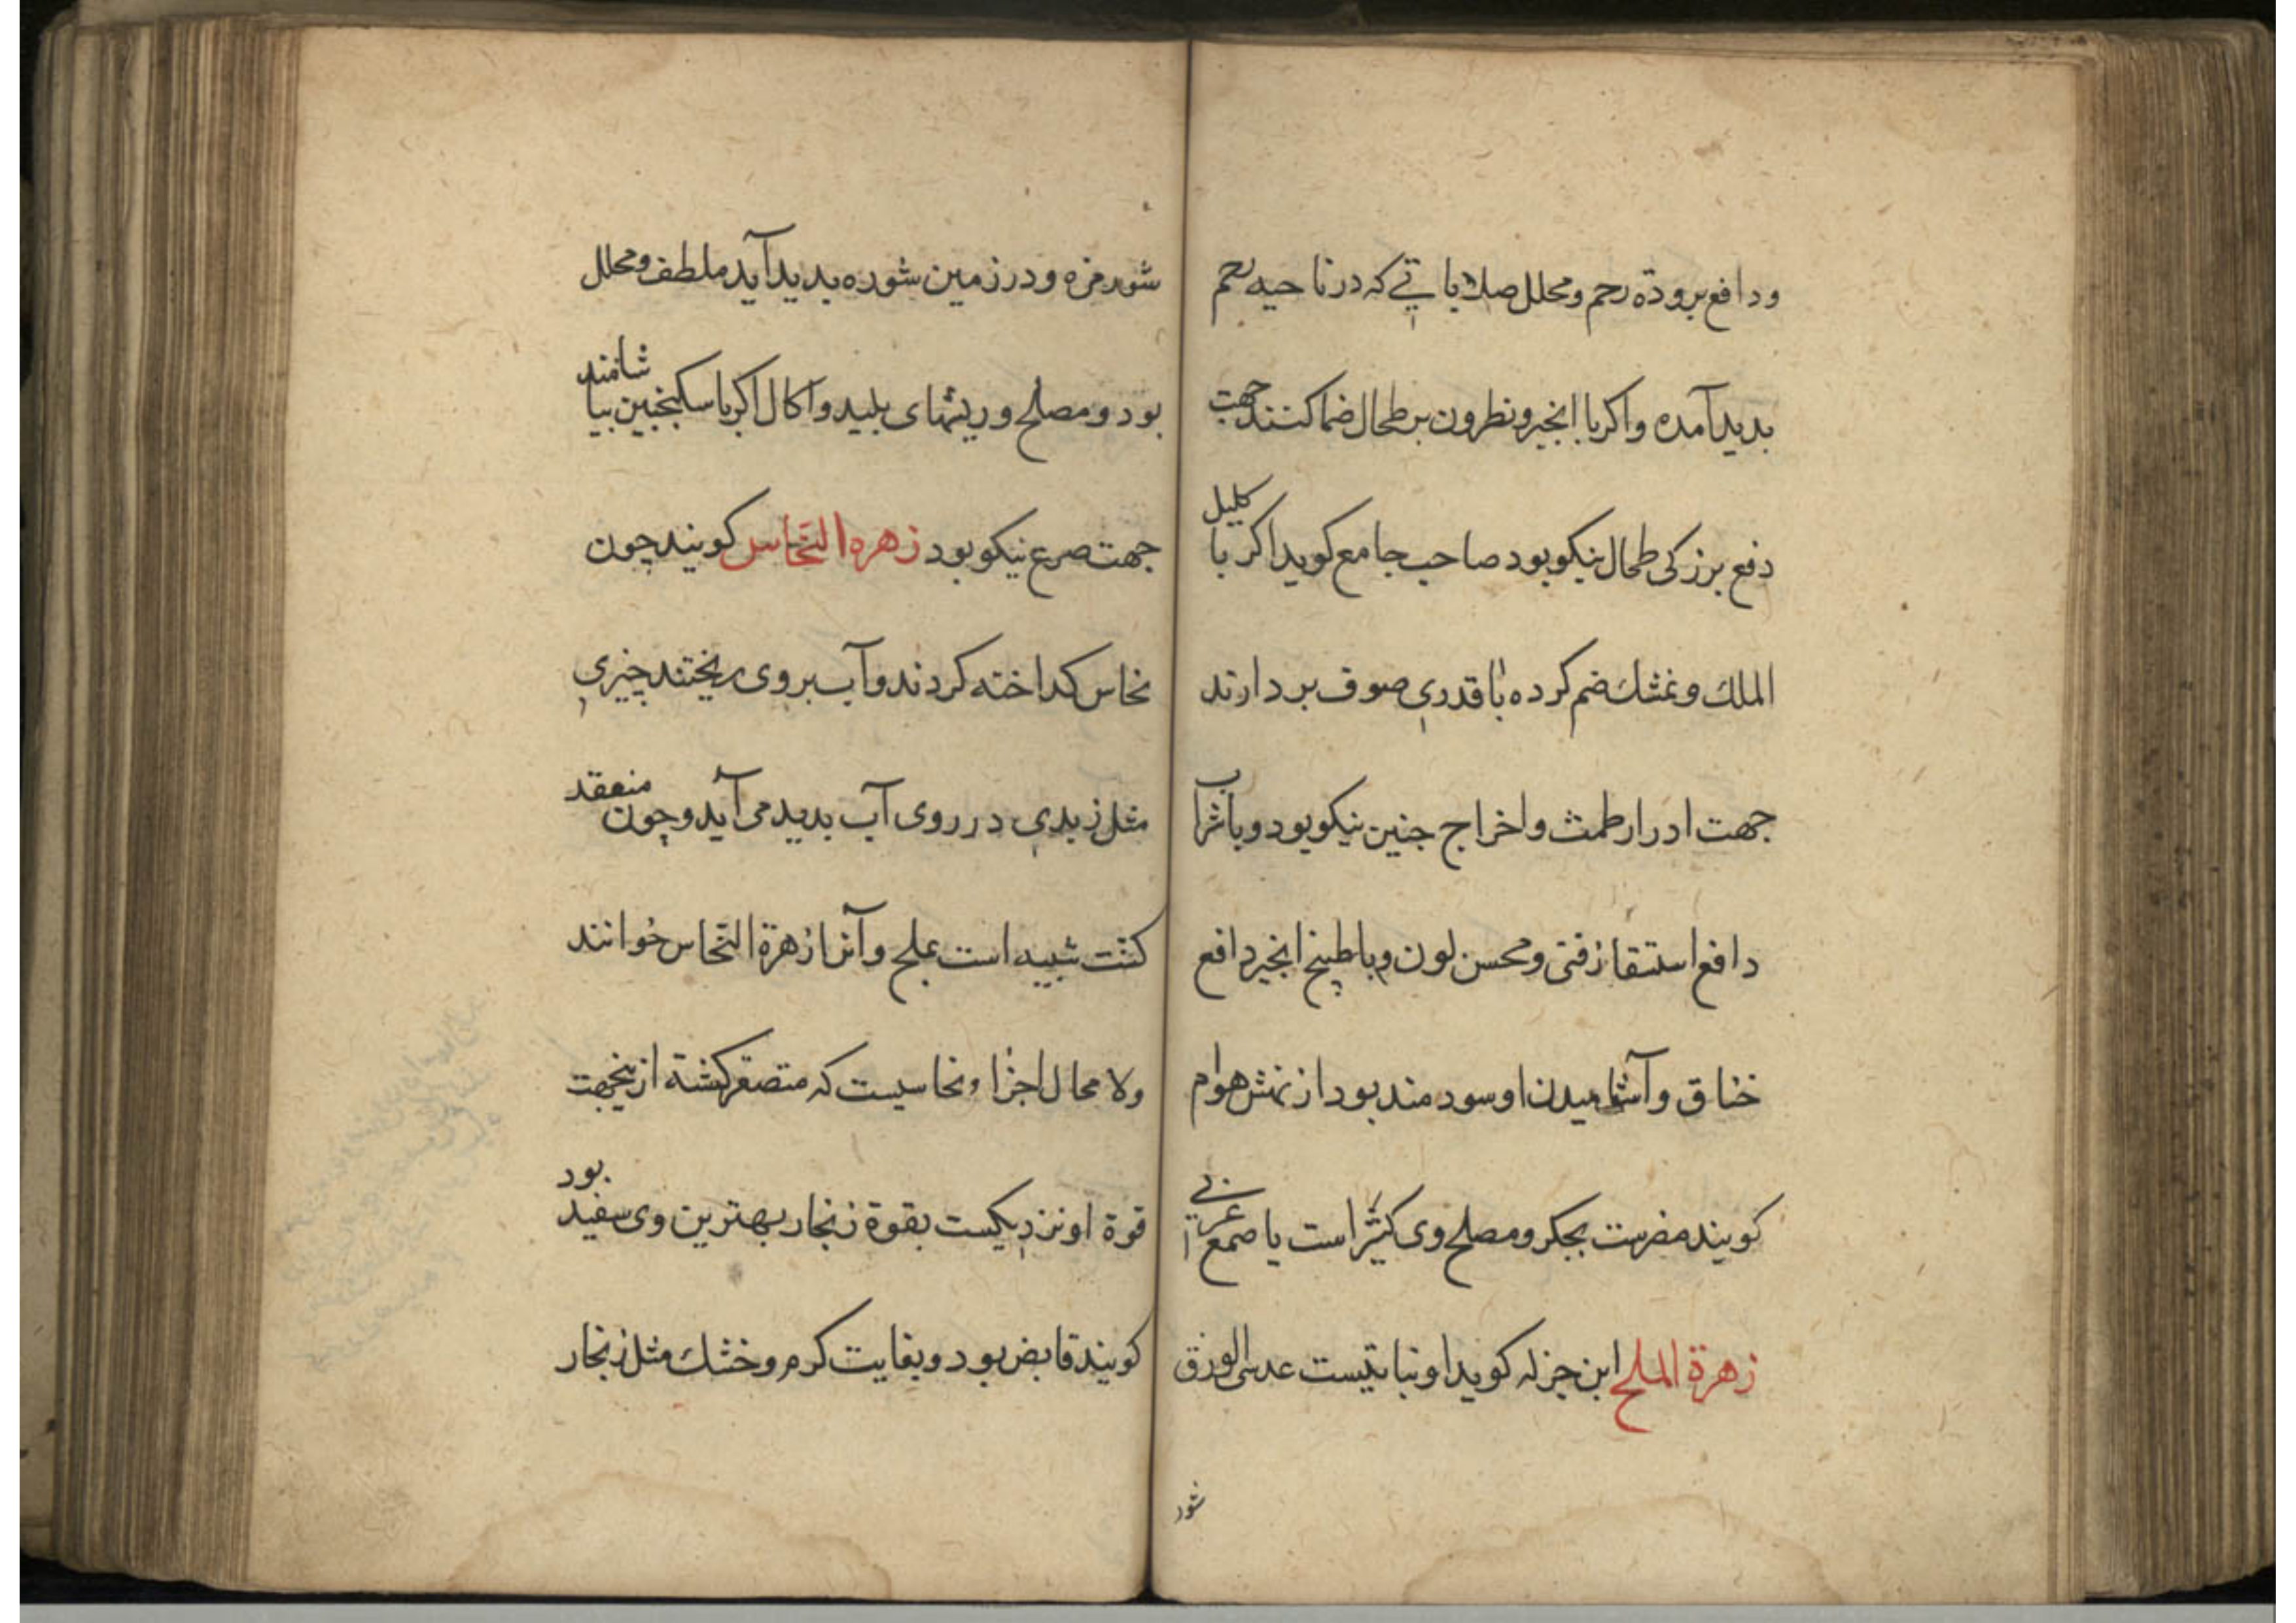 ودافع برودة رحم ومحلل صلاباتے که در ناحیه رحم
بدید آمده واکر با انجیر ونطرون بر طحال ضماد کنند جهت
دفع بزرکی طحال نیکو بود صاحب جامع کوید اکر با کلیل
الملک و غشک ضم کرده با قدری صوف بردارند
جهت ادرار طمث واخراج جنین نیکو بود وبا شراب
دافع استسقا زقی ومحسن لون وبا طبیخ انجیر دافع
خناق وآشامیدن او سودمند بود از نهش هوام
کویند مضرست بجکر ومصلح وی کثیرا است یا صمغ عربی
زهرة الملح ابن جزله کوید او نباتیست عدسی الورق
شور
شور مزه ودر زمین شوره بدید آید ملطف ومحلل
بود ومصلح وریشهای بلید واکال اکر با سکنجبین بیاشامند
جهت صرع نیکو بود زهره النحاس کویند چون
نحاس کداخته کردند وآب بر وی ریختند چیزی
مثل زبدی در روی آب بدید می آید وچون منعقد
کشت شبیه است بملح وآنرا زهرة النحاس خوانند
ولا محال اجزاء نحاسیست که متصغر کشته ازینجهت
قوة او نزدیکست بقوة زنجار بهترین وی سفید بود
کویند قابض بود وبغایت کرم وخشک مثل زنجار